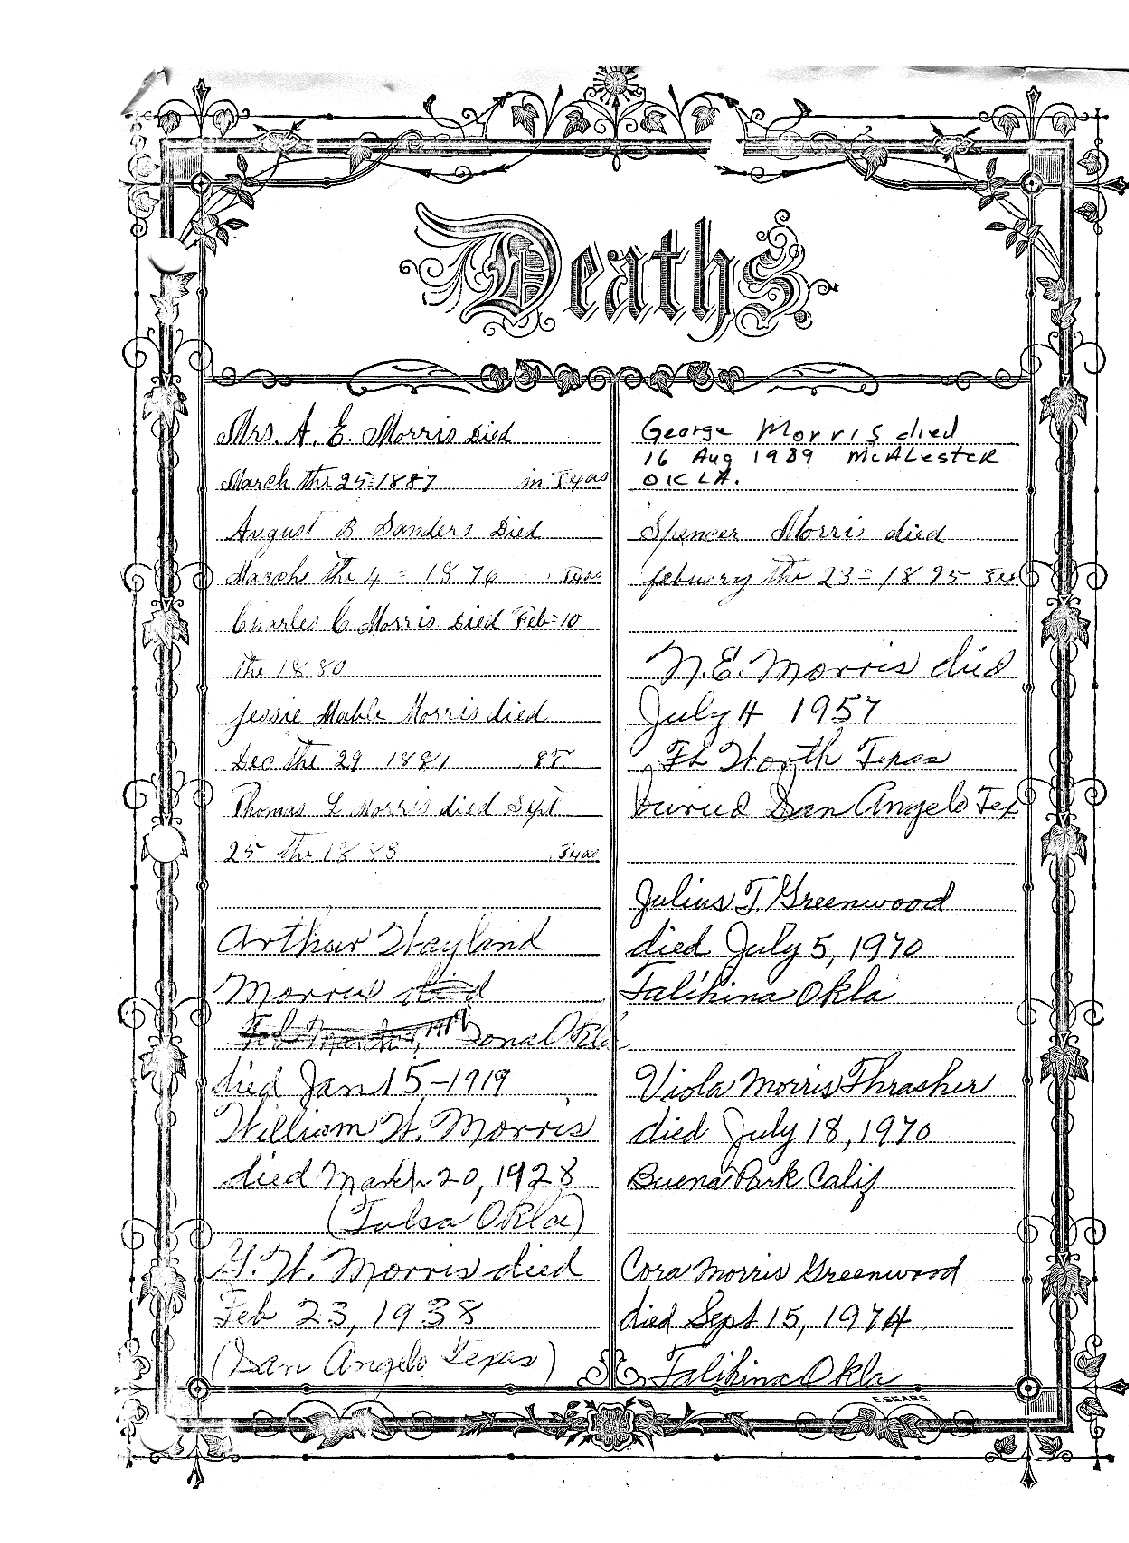 Deaths.
Mrs. A. E. Morris Died
March the 25=1887 in Texas
August B Sanders Died
Marche the 4 = 1876 Texas
Charles C Morris Died Feb=10
the 1880
Jessie Mable Morris died
Dec the 29 1881 85
Thomas L Morris died Sept
25 the 1888 Texas
Arthur Wayland
Morris died
Iona Okla
died Jan 15-1919
William W. Morris
died March 20, 1928
(Tulsa Okla)
W. Morris died
Feb 23, 1938
(San Angelo Texas)
George Morris died
16 Aug 1989 McALester
OKLA.
Spencer Morris died
febuery the 23=1895
N.E. Morris died
July 4 1957
Ft Worth Texas
buried San Angelo Tex
Julius T. Greenwood
died July 5, 1970
Talihina Okla
Viola Morris Thrasher
died July 18, 1970
Buena Park Calif
Cora Morris Greenwood
died Sept 15, 1974
Talihina Okla
E. SEARS.